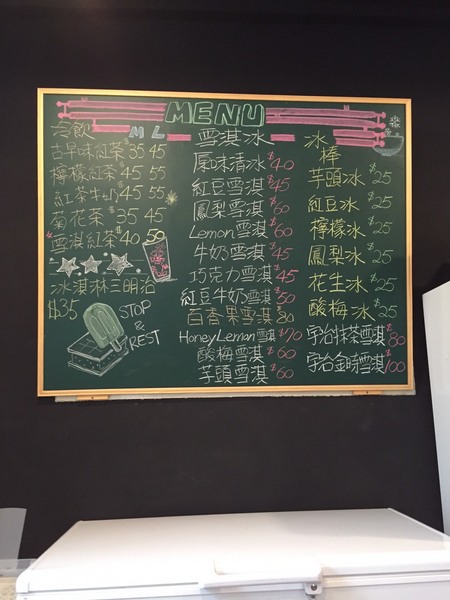 MENU
冷飲 M L
古早味紅茶 $35 45
檸檬紅茶 $45 55
紅茶牛奶 $45 55
菊花茶 $35 45
雪淇紅茶 $40 50
冰淇淋三明治
$35
STOP
&
REST
雪淇冰
原味清冰 $40
紅豆雪淇 $45
鳳梨雪淇 $60
Lemon雪淇 $60
牛奶雪淇 $45
巧克力雪淇 $45
紅豆牛奶雪淇 $50
百香果雪淇 $80
HoneyLemon雪淇 $70
酸梅雪淇 $60
芋頭雪淇 $60
冰
棒
芋頭冰 $25
紅豆冰 $25
檸檬冰 $25
鳳梨冰 $25
花生冰 $25
酸梅冰 $25
宇治抹茶雪淇 $80
宇治金時雪淇 $100